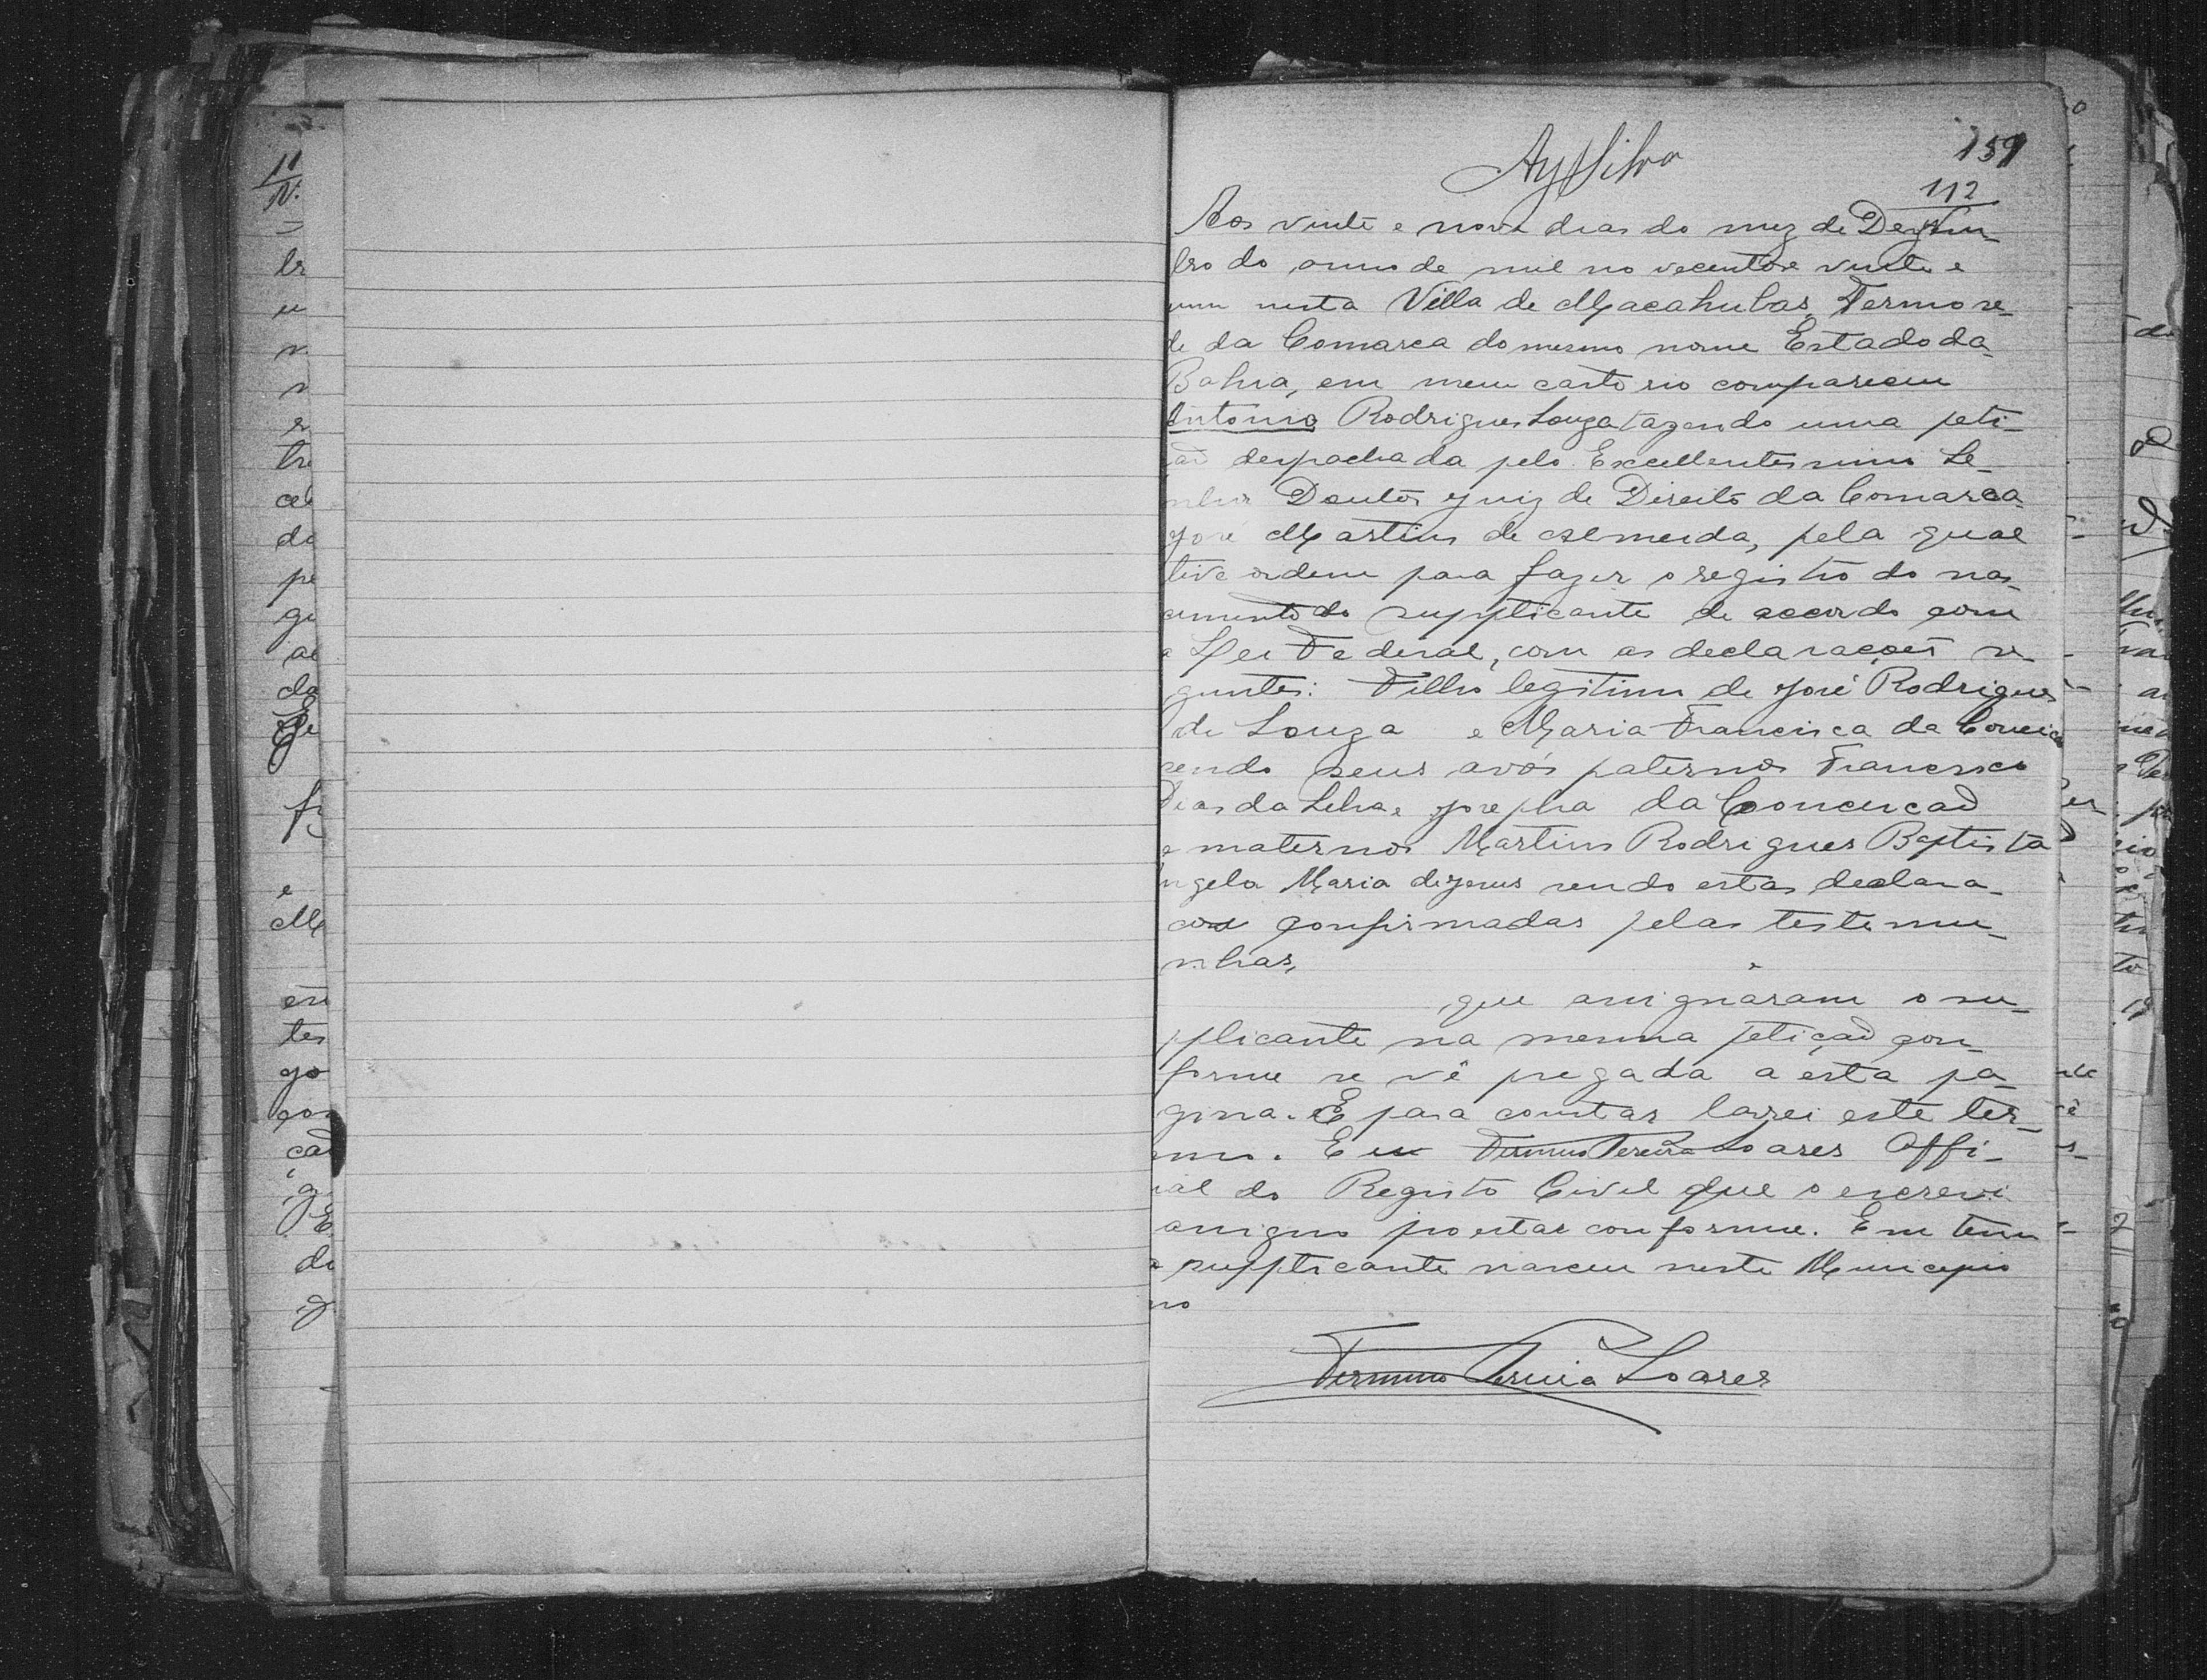 159
112
Aos vinte e nove dias do mez de Dezem-
bro do anno de mil no vecentos e vinte e
um nesta Villa de Macahubas, Termo se-
de da Comarca do mesmo nome Estado da
Bahia, em meu cartorio compareceu
Antonio Rodrigues Souza tazendo uma peti-
çaõ despachada pelo Excellentissimo Se-
nhor Doutor Juiz de Direito da Comarca
José Martins de Almeida, pela qual
tive ordem para fazer o registro do nas-
cimento do supplicante de accordo com
a Lei Federal, com as declarações se-
guntes: Filho legitimo de José Rodrigues
de Souza e Maria Francisca da Concei
sendo seus avós paternos Francisco
Dias da Silva e Josepha da Conceicaõ
e maternos Martins Rodrigues Baptista
Angela Maria de Jesus sendo estas declara-
coes confirmadas pelas testemu-
nhas,
que assignaram o su-
pplicante na mesma petiçaõ con-
forme se vê pregada a esta pa-
gina. E para constar lavrei este ter-
mo. Eu Firmino Pereira Soares Offi-
cial do Registo Civil que o escrevi
assigno por estar conforme. Em tem
o supplicante nasceu neste Municipio
no
Firmino Pereira Soares